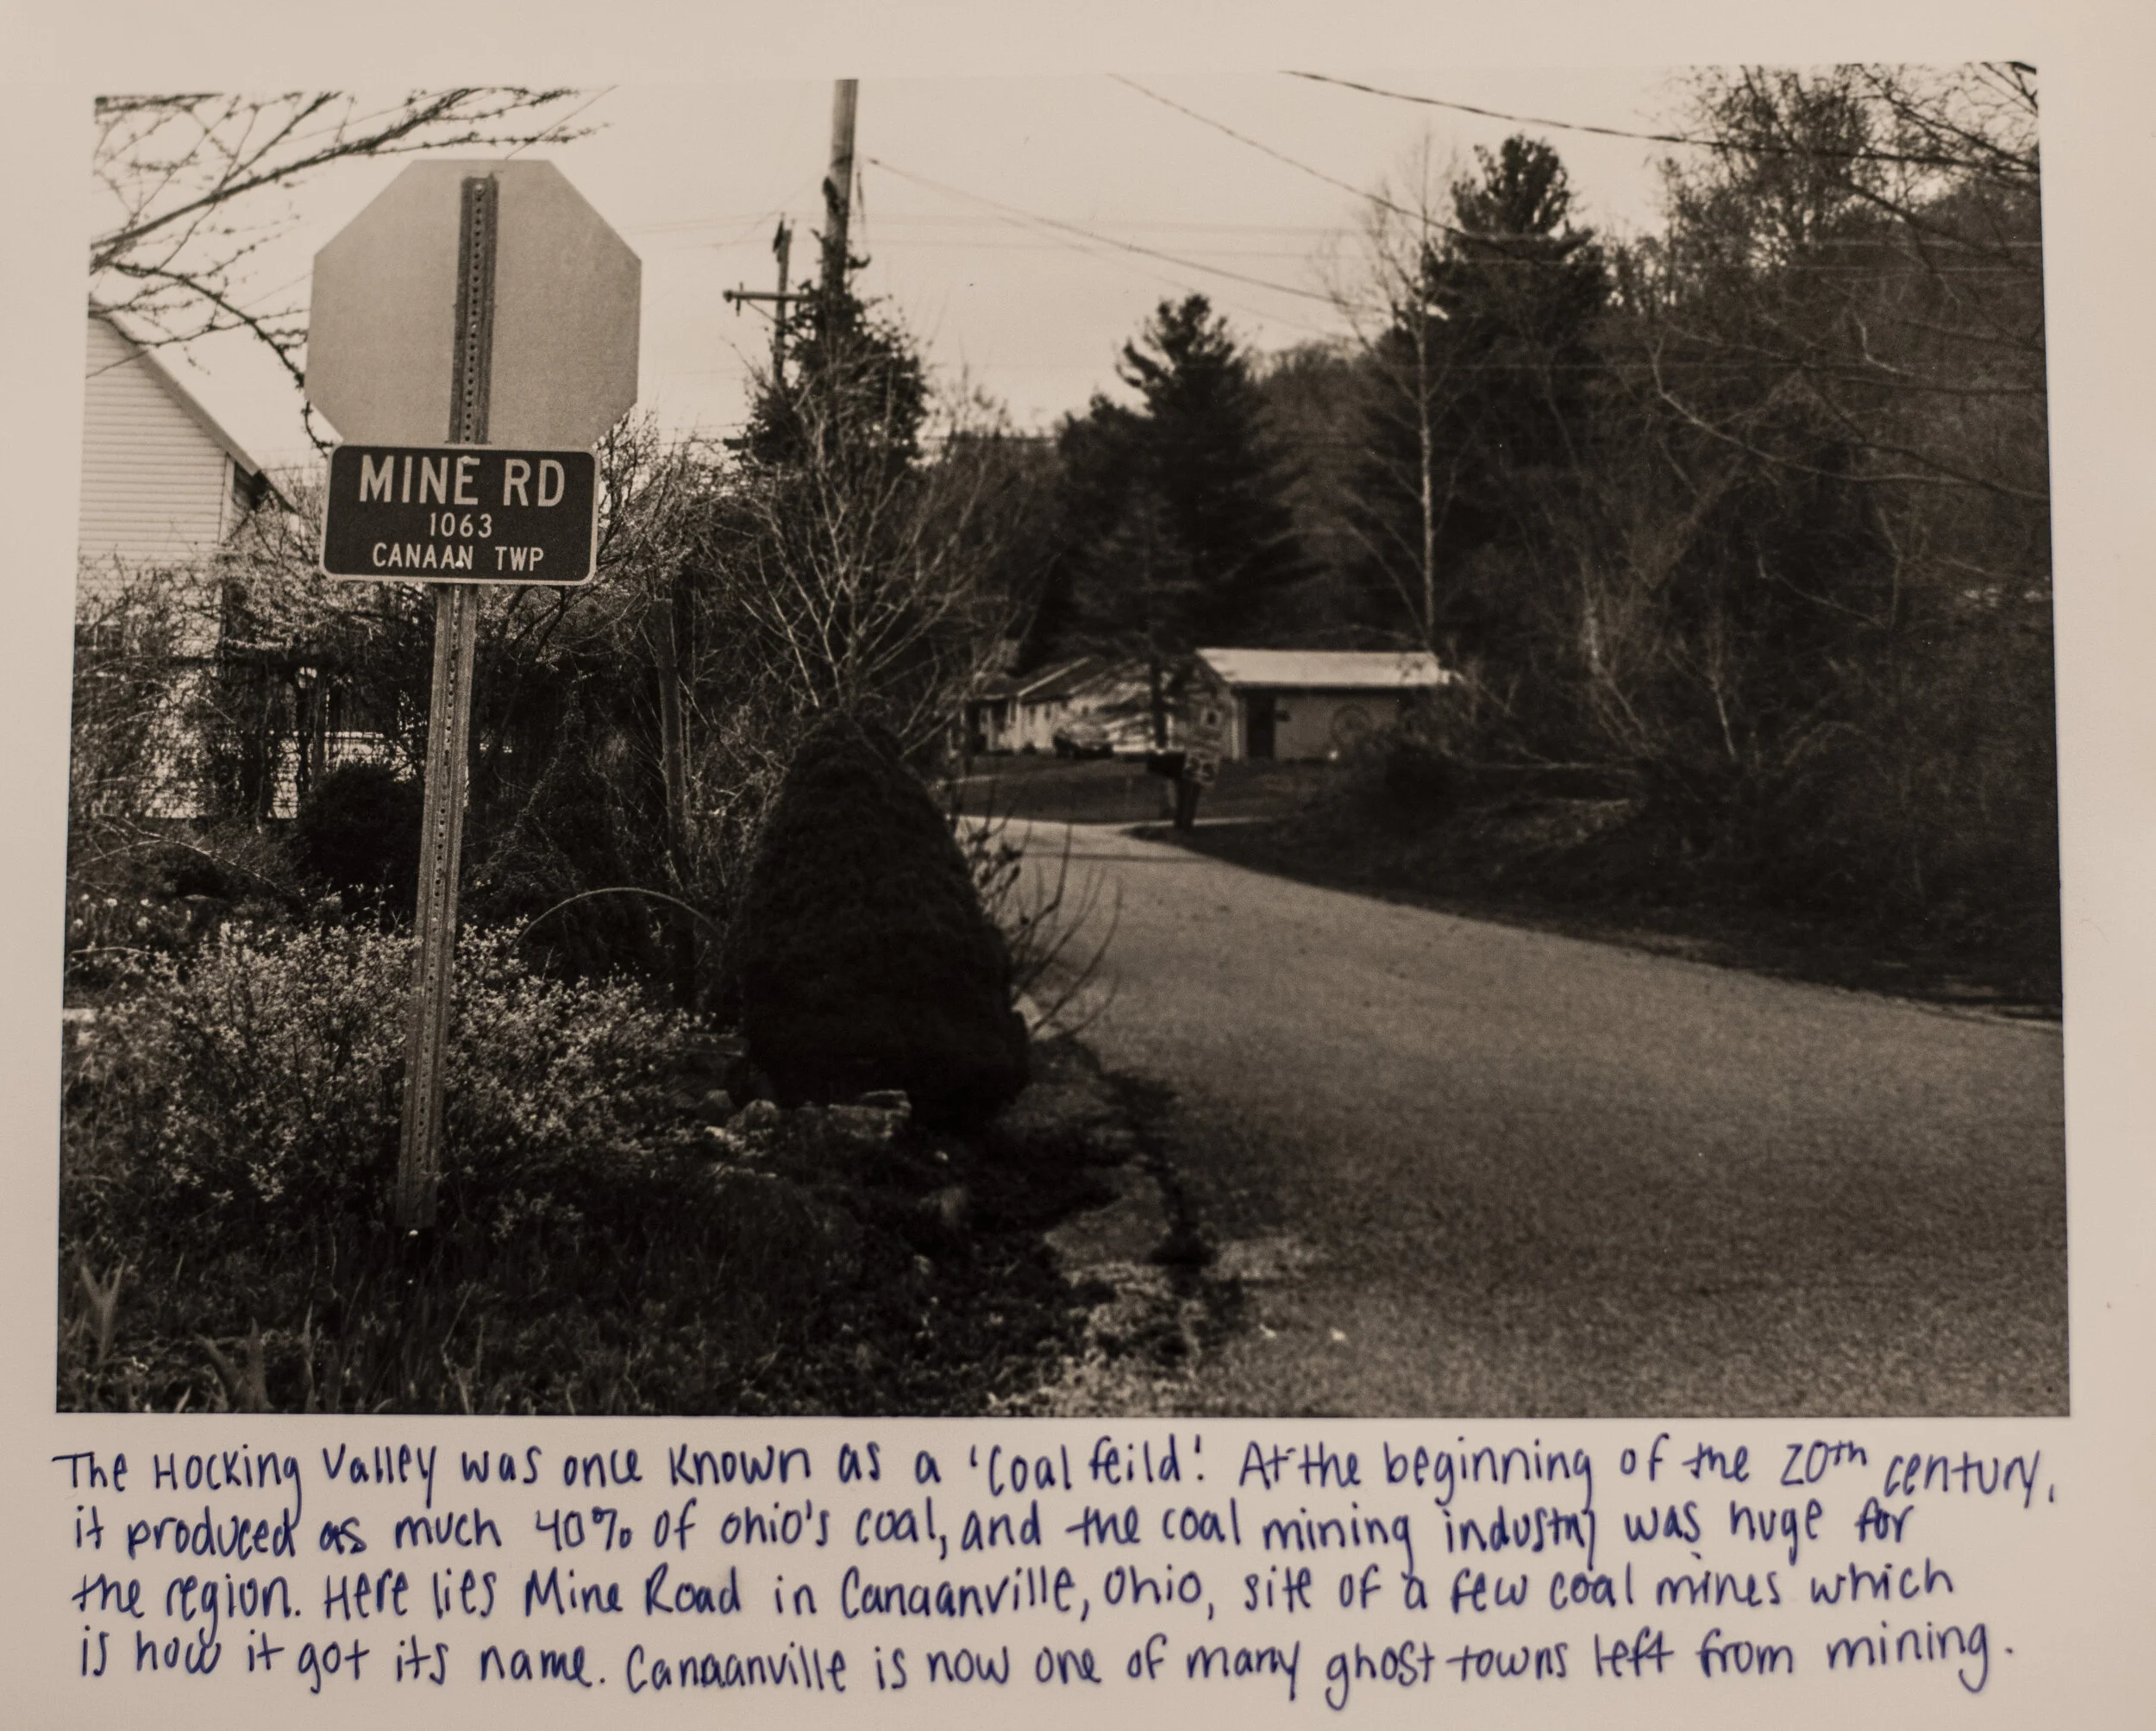 MINE RD
1063
CANAAN TWP
The Hocking Valley was once known as a 'Coal feild'. At the beginning of the 20th century,
it produced as much 40% of ohio's coal, and the coal mining industry was huge for
the region. Here lies Mine Road in Canaanville, Ohio, site of a few coal mines which
is how it got its name. Canaanville is now one of many ghost towns left from mining.